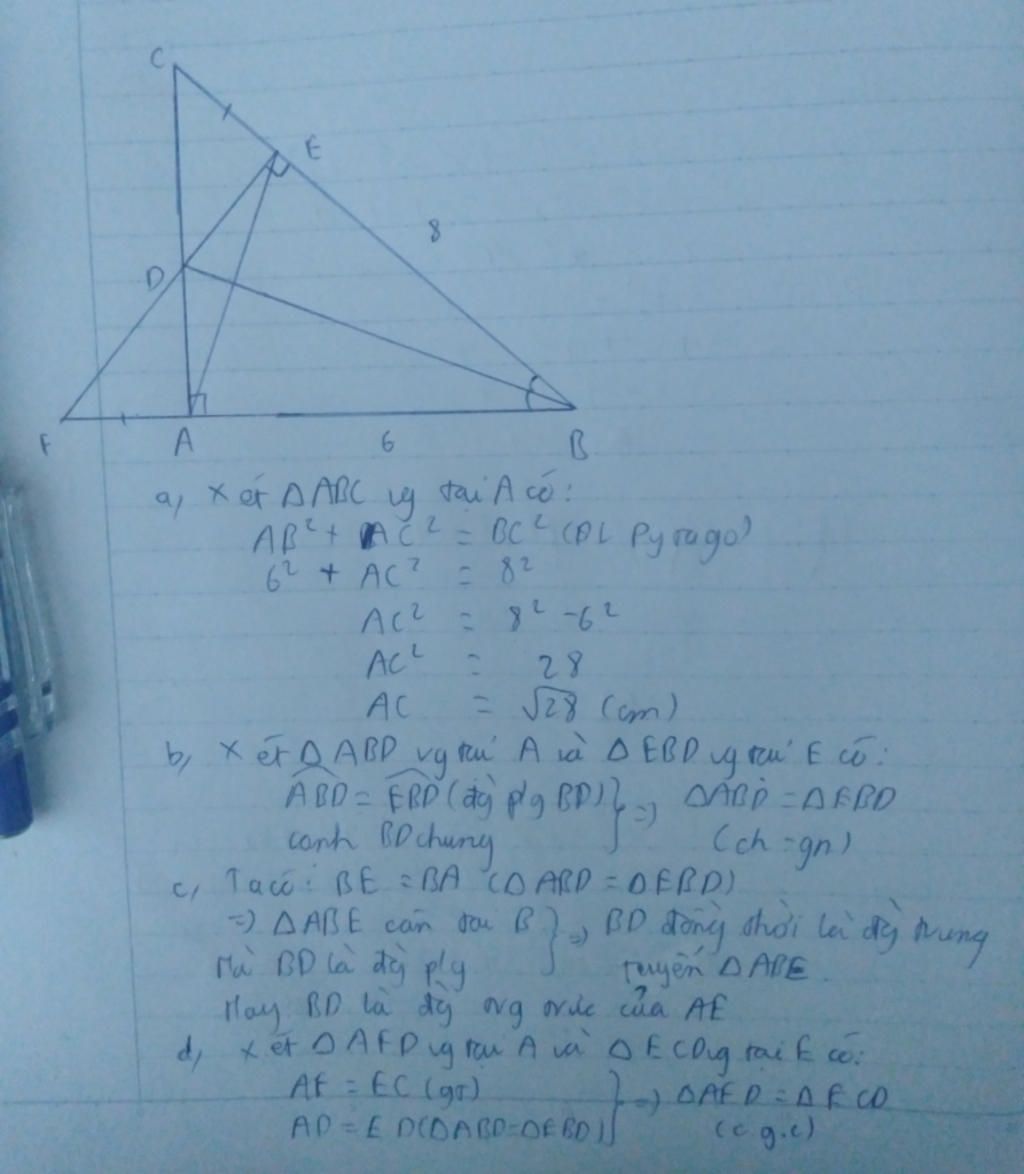 C
E
8
D
F
A
6
B
a, Xét ΔABC vg tại A có:
AB² + AC² = BC² (ĐL Pytago)
6² + AC² = 8²
AC² = 8² - 6²
AC² = 28
AC = √28 (cm)
b, Xét ΔABD vg tại A và ΔEBD vg tại E có:
ABD = EBD (đg plg BD) } => ΔABD = ΔEBD
cạnh BD chung (ch - gn)
c, Ta có: BE = BA (ΔABD = ΔEBD)
=> ΔABE cân tại B } => BD đồng thời là đg trung
Mà BD là đg plg tuyến ΔABE
Hay BD là đg trg trực của AE
d, Xét ΔAFD vg tại A và ΔECD vg tại E có:
AF = EC (gt) } => ΔAFD = ΔECD
AD = ED (ΔABD = ΔEBD) (c.g.c)